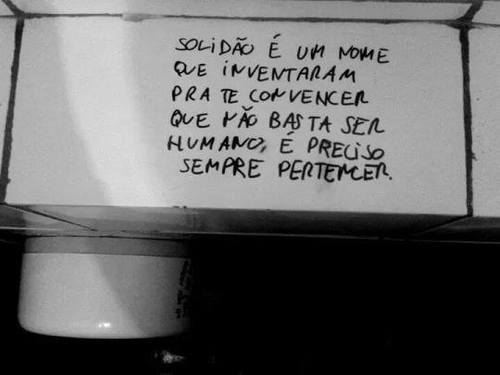 SOLIDÃO É UM NOME
QUE INVENTARAM
PRA TE CONVENCER
QUE NÃO BASTA SER
HUMANO, É PRECISO
SEMPRE PERTENCER.